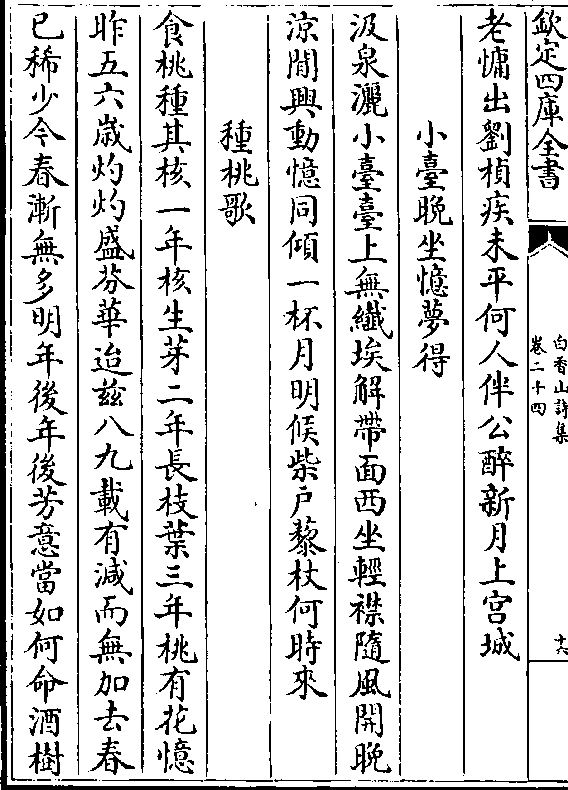 欽定四庫全書
白香山詩集
卷二十四
十六
老慵出劉楨疾未平何人伴公醉新月上宮城
小臺晚坐憶夢得
汲泉灑小臺臺上無纖埃解帶面西坐輕襟隨風開晚
涼閒興動憶同傾一杯月明候柴戸藜杖何時來
種桃歌
食桃種其核一年核生芽二年長枝葉三年桃有花憶
昨五六歳灼灼盛芬華迨兹八九載有減而無加去春
已稀少今春漸無多明年後年後芳意當如何命酒樹